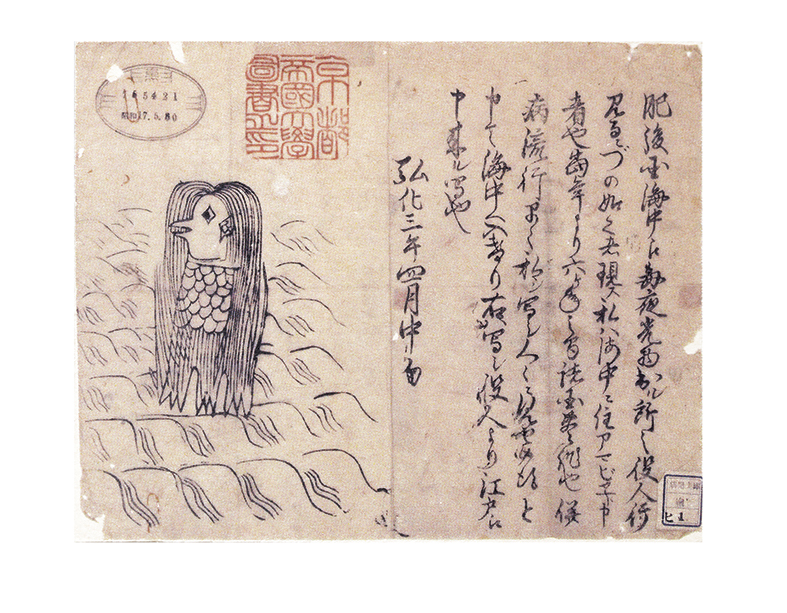 肥後国海中え毎夜光物出ル所之役人行
見るニづの如く者現ス私ハ海中ニ住アマビヱト申
者也當年より六ヶ年之間諸国豊作也併
病流行早々私ヲ写シ人々ニ見せ候得と
申て海中へ入けり右写シ役人より江戸え
申来ル写也
弘化三年四月中旬
京都
帝國大學
圖書之印
昭和17.5.30
ヒ 1